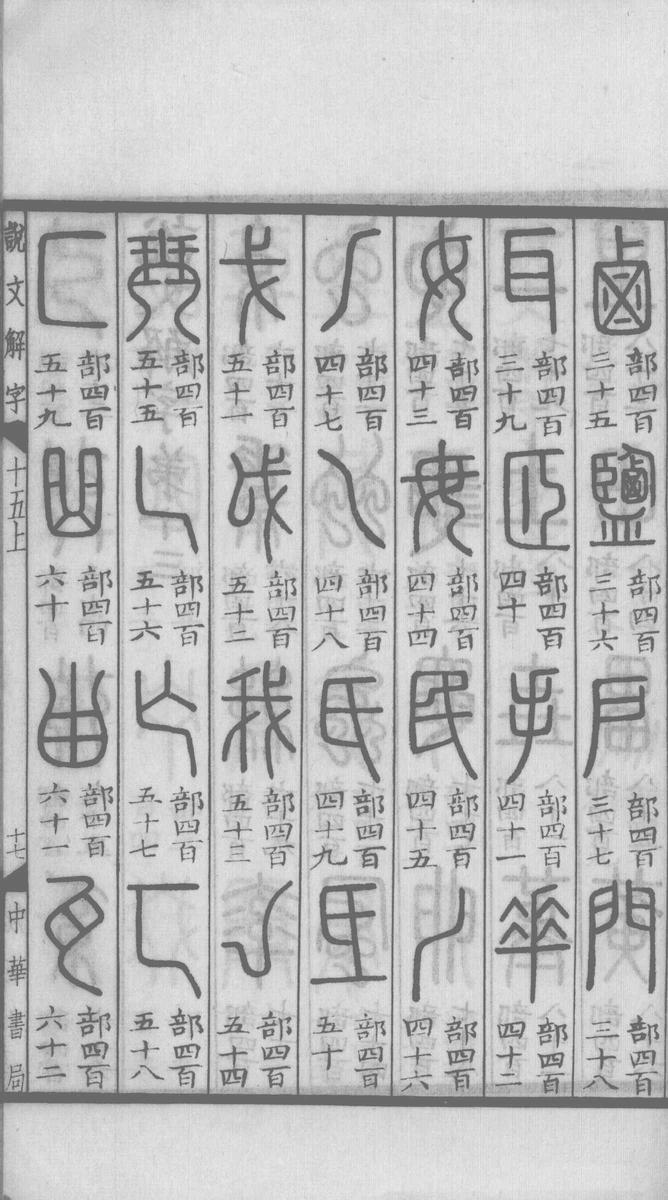 鹵 部四百三十五 鹽 部四百三十六 戶 部四百三十七 門 部四百三十八
耳 部四百三十九 𦣝 部四百四十 手 部四百四十一 𠦬 部四百四十二
女 部四百四十三 毋 部四百四十四 民 部四百四十五 丿 部四百四十六
𠂆 部四百四十七 乁 部四百四十八 氏 部四百四十九 氐 部四百五十
戈 部四百五十一 戉 部四百五十二 我 部四百五十三 亅 部四百五十四
珡 部四百五十五 乚 部四百五十六 亾 部四百五十七 匸 部四百五十八
匚 部四百五十九 曲 部四百六十 甾 部四百六十一 瓦 部四百六十二
說文解字 十五上 十七 中華書局